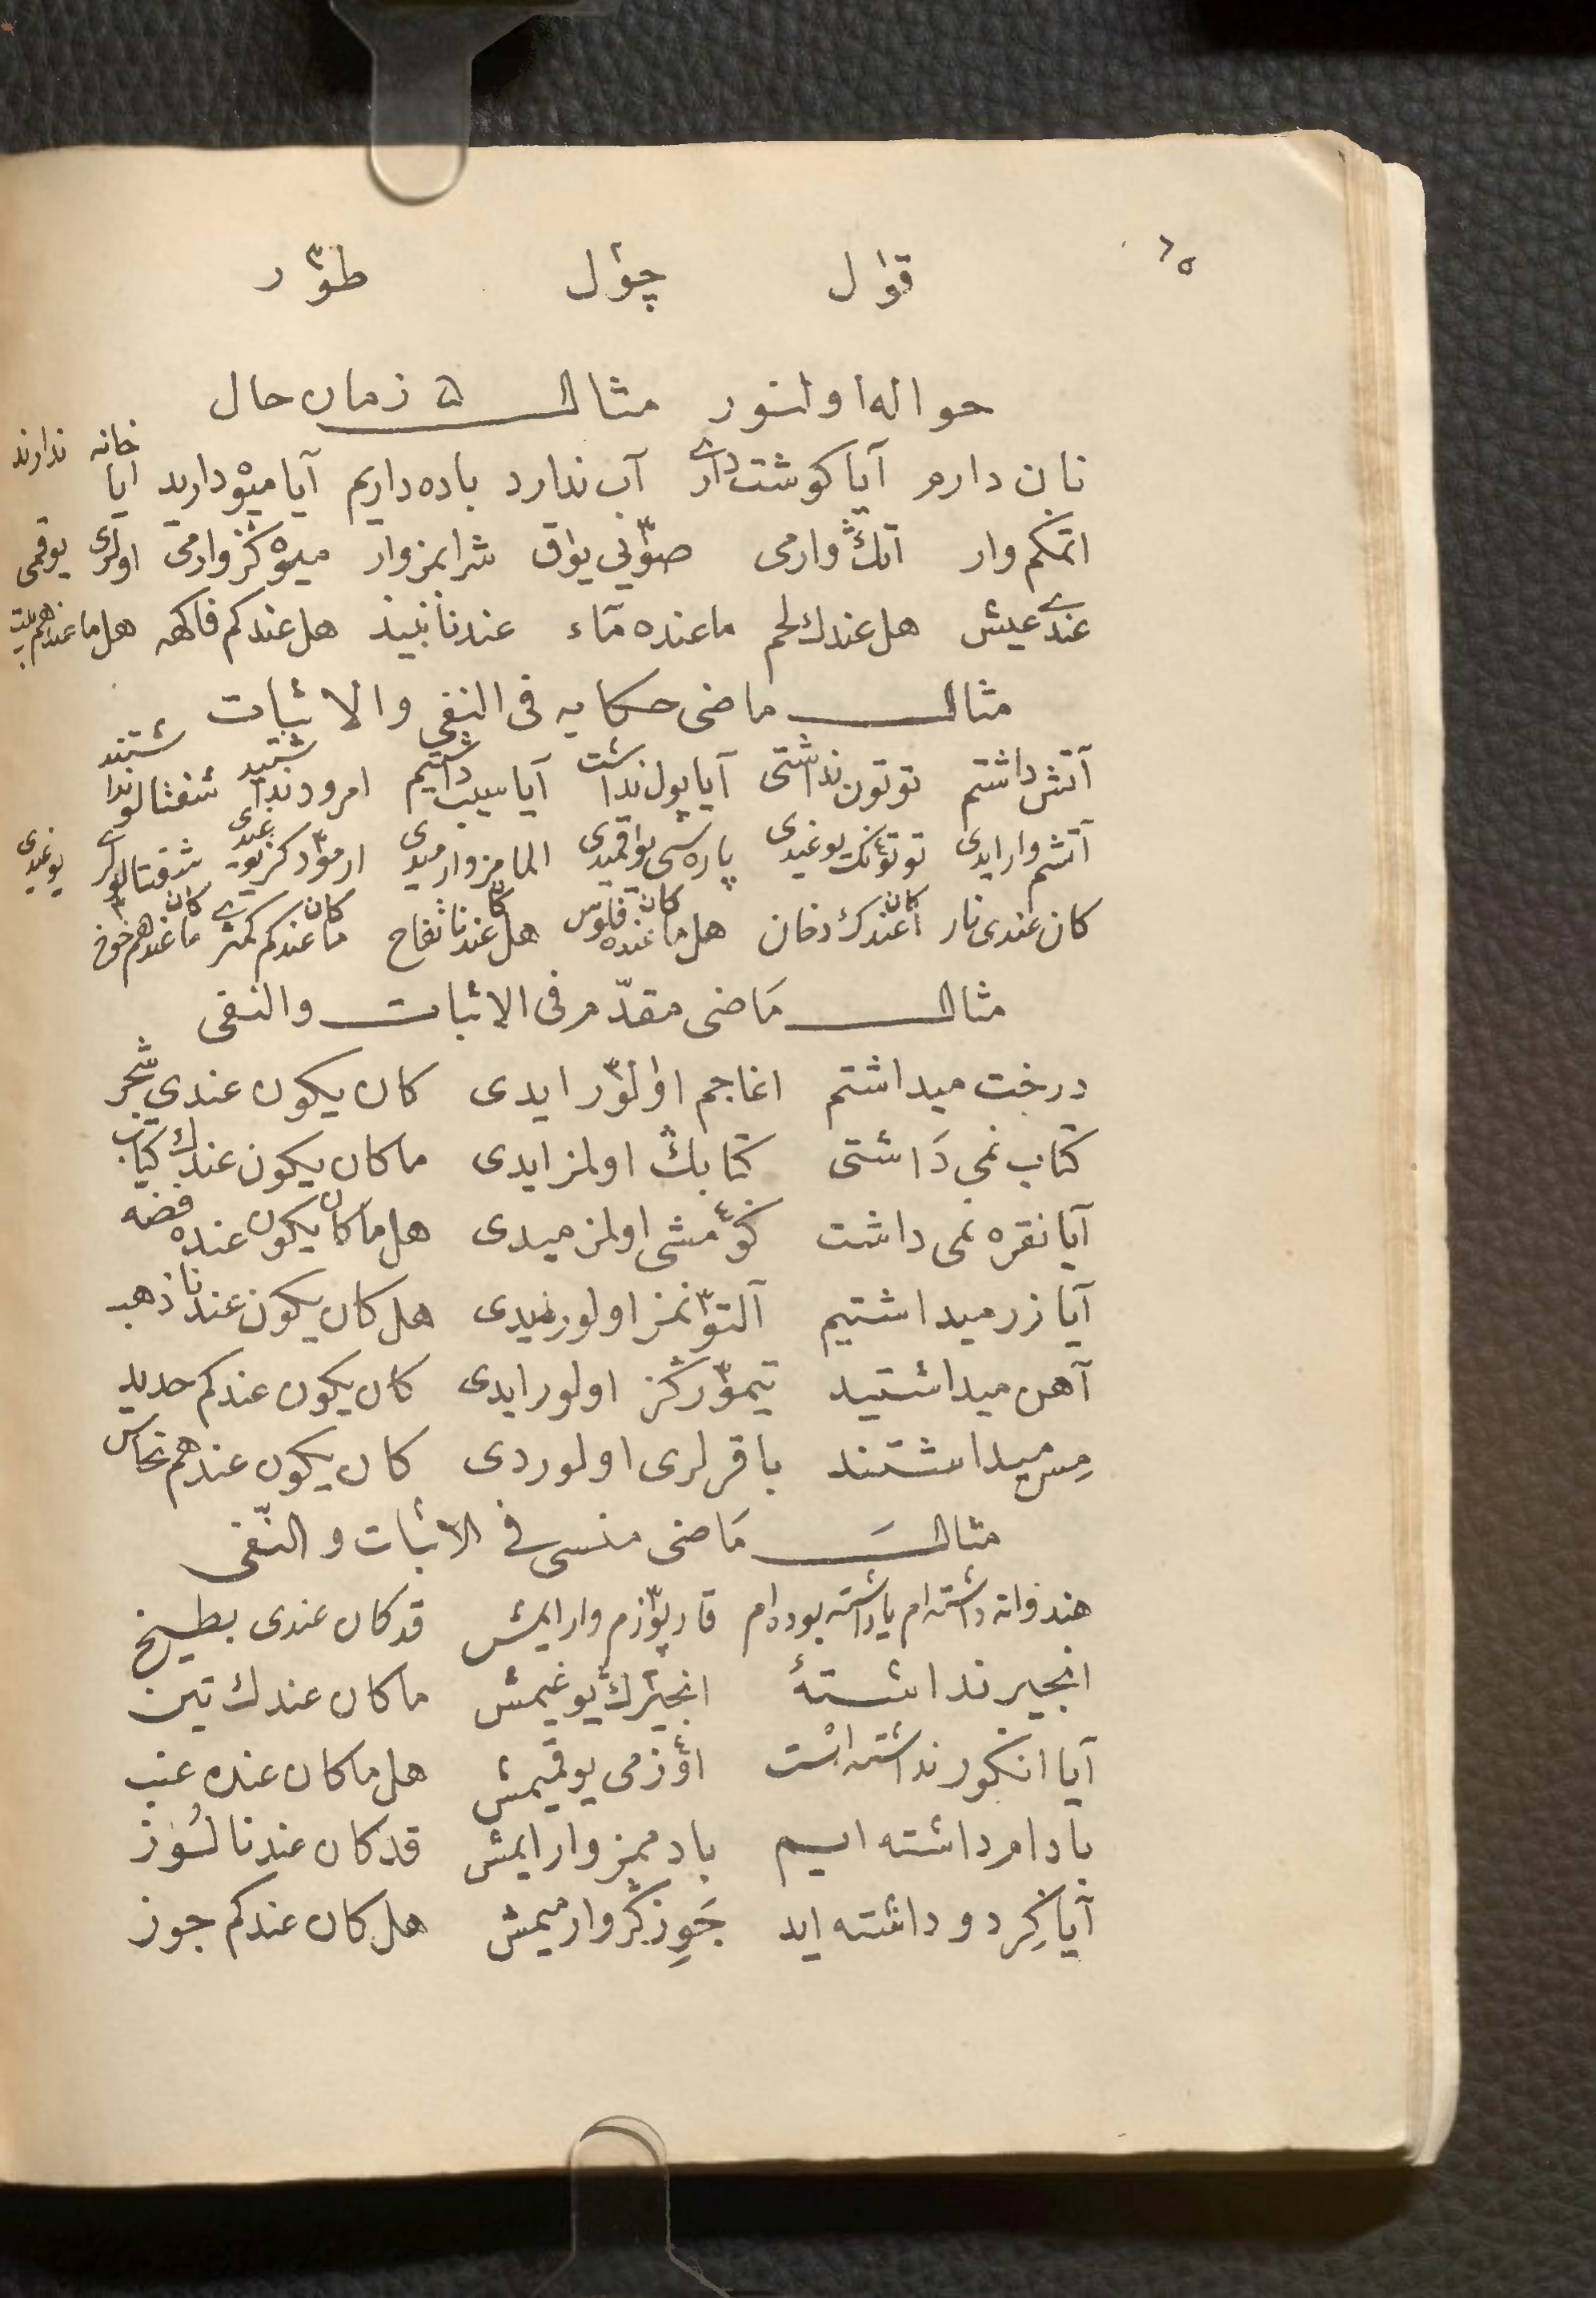 ٦٥
قوٰل چوٴل طوٓر
حواله اولنور مثال ۵ زمان حال
نان دارم آیا کوشت داری آب ندارد باده داریم آیا میوه دارید آیا خانه ندارند
اتمكم وار اتڭ وارمی صوٓیی یوٰق شرابمز وار میوه ڭز وارمی اولری یوقمی
عندی عیش هل عندك لحم ما عنده مآء عندنا نبیذ هل عندكم فاكهه هل ما عندهم بیت
مثال ماضی حكایه فی النفی والاثبات
آتش داشتم توتون نداشتی آیا پول نداشت آیا سیب داشتیم امرود نداشتید شفتالو نداشتند
آتشم وار ایدی توتوٴنڭ یوغیدی پاره سی یوٰقمیدی المامز وارمیدی ارموٓد ڭز یوغیدی شفتالولری یوغیدی
كان عندی نار أكان عندك دخان هل ما كان عنده فلوس هل كان عندنا تفاح ما كان عندكم كمثری ما كان عندهم خوخ
مثال مَاضی مقدّم فی الاثبات والنفی
درخت میداشتم اغاجم اوٰلوٓر ایدی كان یكون عندی شجر
كتاب نمی دَاشتی كتابڭ اولمز ایدی ما كان یكون عندك كتاب
آیا نقره نمی داشت كوٴمشی اولمزمیدی هل ما كان یكون عنده فضه
آیا زر میداشتیم آلتوٓنمز اولورمیدی هل كان یكون عندنا ذهب
آهن میداشتید تیموٓرڭز اولور ایدی كان یكون عندكم حدید
مِس میداشتند باقرلری اولوردی كان یكون عندهم نحاس
مثالَ مَاضی منسی فی الاثبات و النّفی
هندوانه داشته ام یا داشته بوده ام قارپوٓزم وار ایمش قد كان عندی بطیخ
انجیر نداشتهٔ انجیرڭ یوغیمش ما كان عندك تین
آیا انكور نداشته است اوٴزمی یوقیمش هل ما كان عنده عنب
بادام داشته ایم بادممز وار ایمش قد كان عندنا لَوز
آیا كِردو داشته اید جَوِزڭز وارمیمش هل كان عندكم جوز